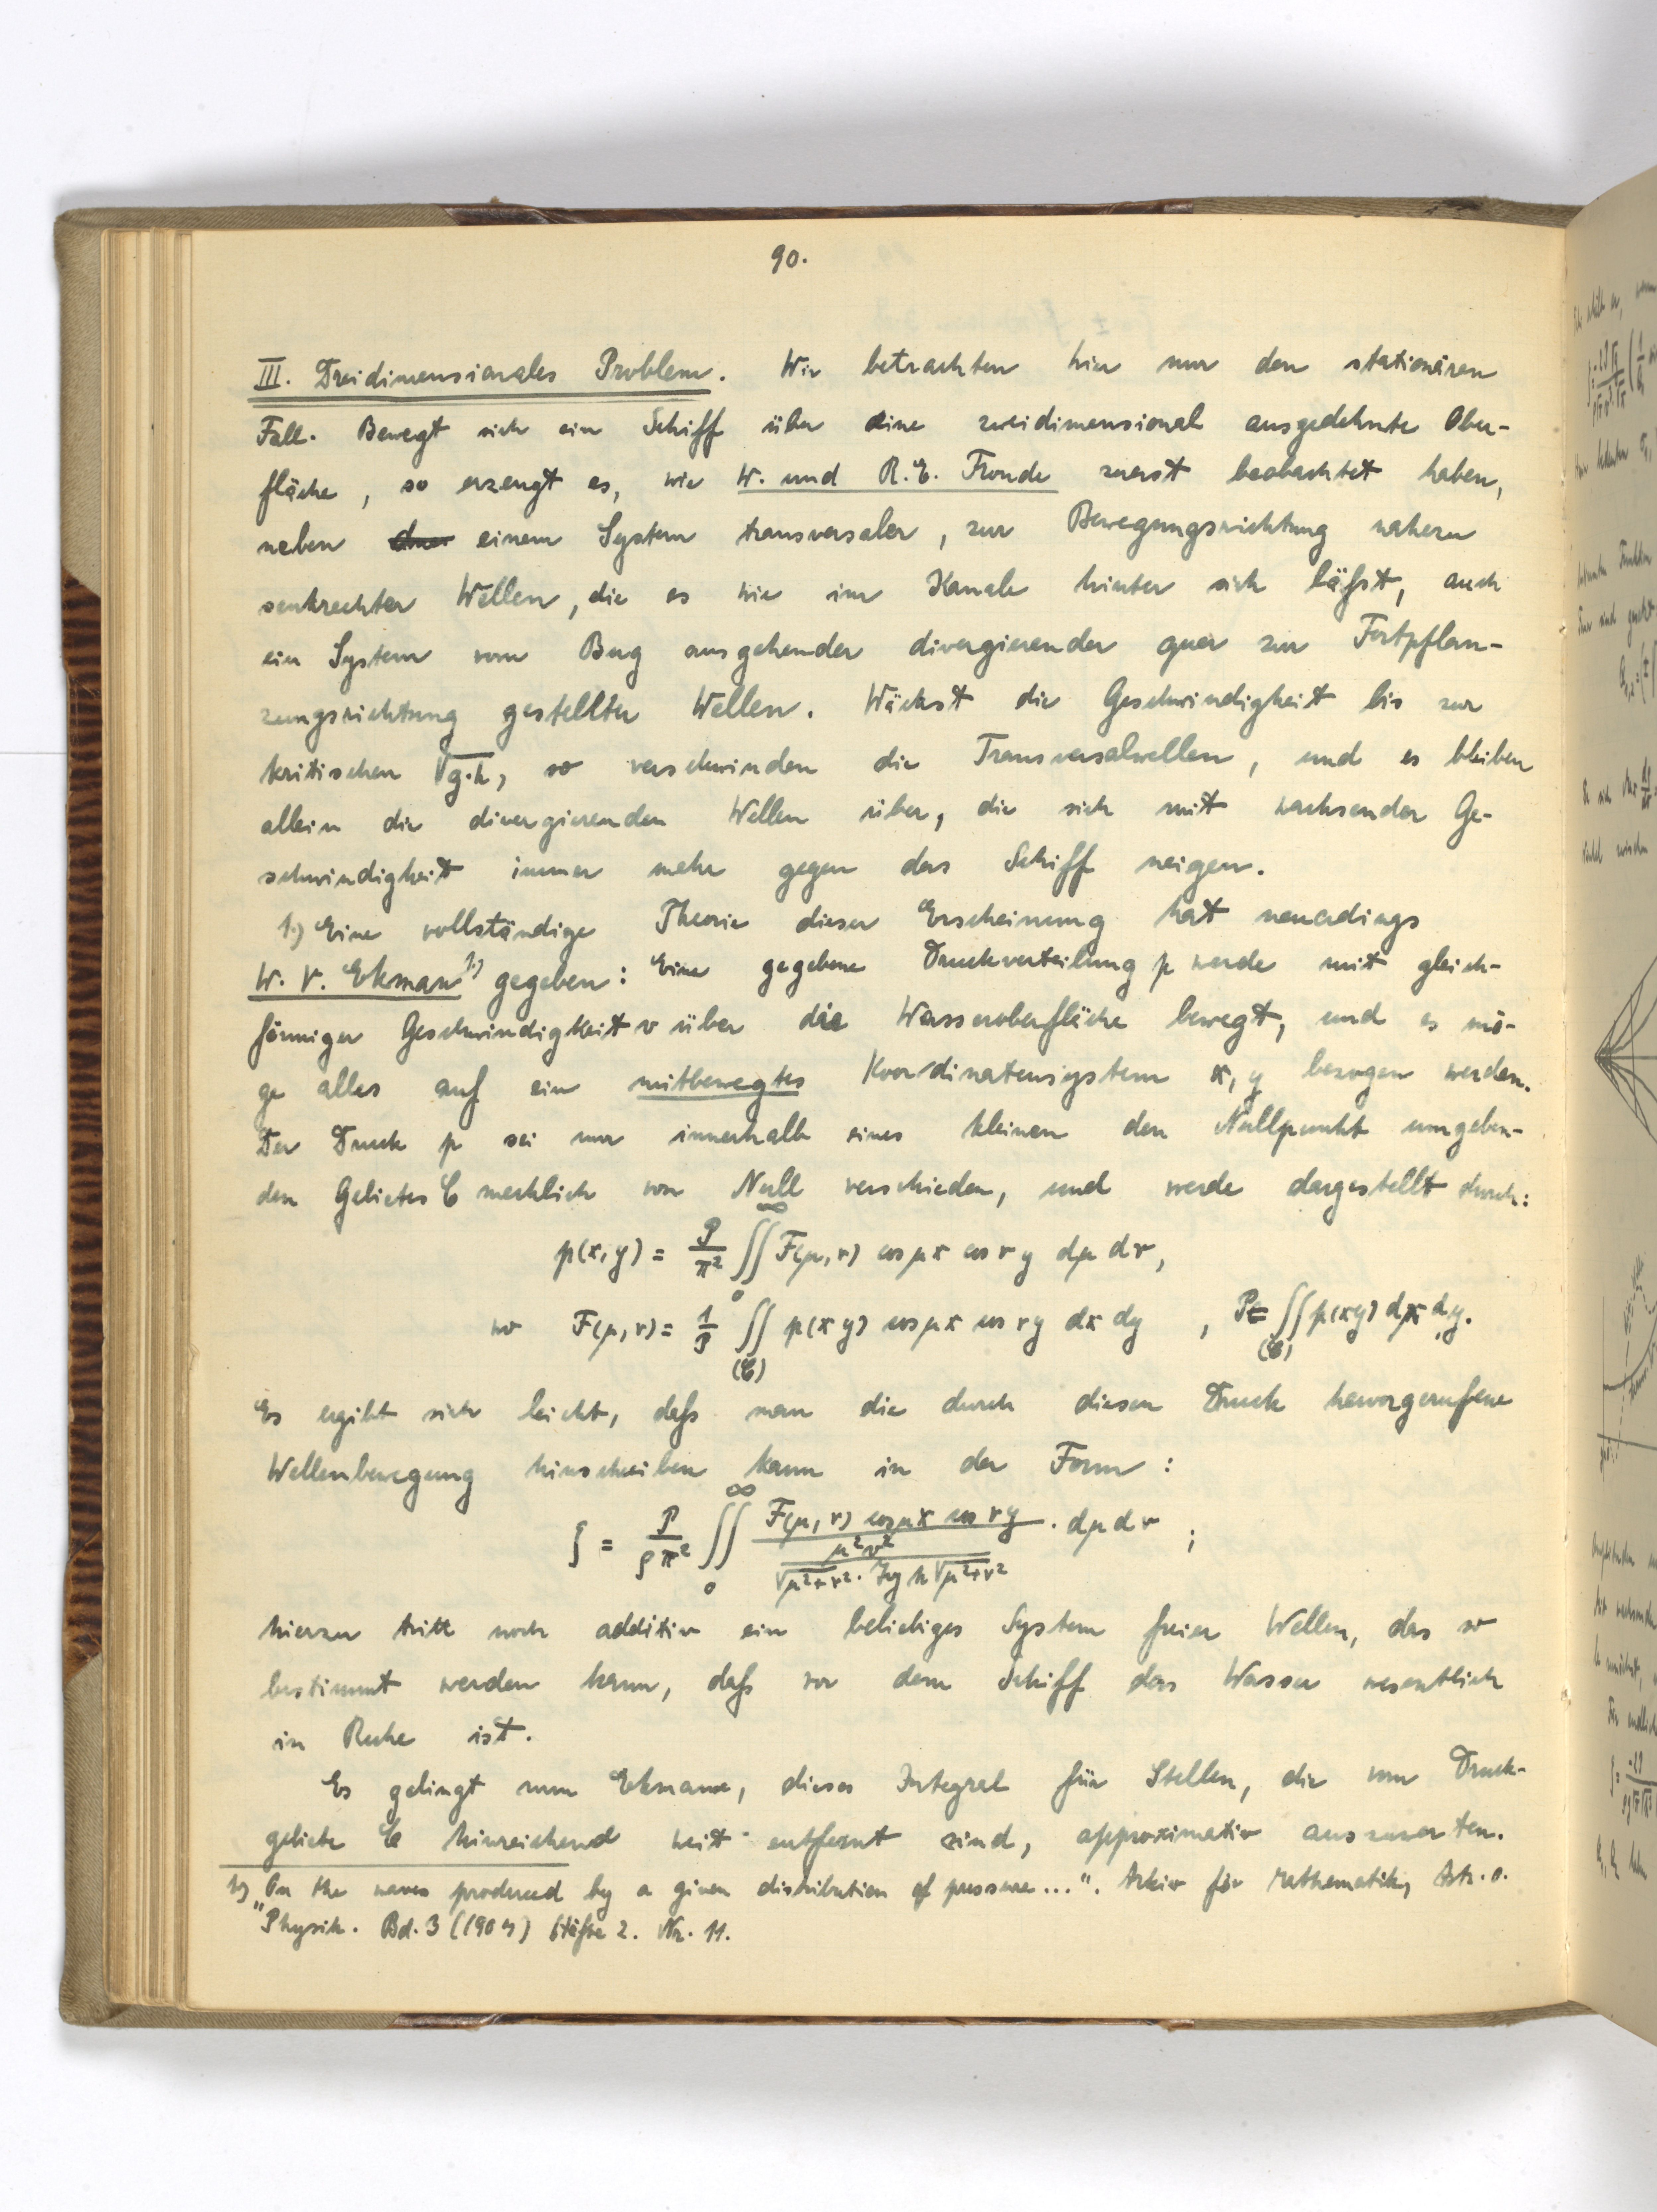 90.
III. Dreidimensionales Problem. Wir betrachten hier nur den stationären
Fall. Bewegt sich ein Schiff über eine zweidimensional ausgedehnte Ober-
fläche, so erzeugt es, wie W. und R. E. Froude zuerst beobachtet haben,
neben einem System transversaler, zur Bewegungsrichtung nahezu
senkrechter Wellen, die es wie im Kanale hinter sich läßt, auch
ein System vom Bug ausgehender divergierender quer zur Fortpflan-
zungsrichtung gestellter Wellen. Wächst die Geschwindigkeit bis zur
kritischen √g.h, so verschwinden die Transversalwellen, und es bleiben
allein die divergierenden Wellen über, die sich mit wachsender Ge-
schwindigkeit immer mehr gegen das Schiff neigen.
1.) Eine vollständige Theorie dieser Erscheinung hat neuerdings
W. V. Ekman 1) gegeben: Eine gegebene Druckverteilung p werde mit gleich-
förmiger Geschwindigkeit v über die Wasseroberfläche bewegt, und es mö-
ge alles auf ein mitbewegtes Koordinatensystem x, y bezogen werden.
Der Druck p sei nur innerhalb eines kleinen den Nullpunkt umgeben-
den Gebietes C merklich von Null verschieden, und werde dargestellt durch:
p(x,y) = P/π² ∫∫₀^∞ F(μ,ν) cos μx cos νy dμ dν,
wo F(μ,ν) = 1/P ∫∫(C) p(xy) cos μx cos νy dx dy , P = ∫∫(C) p(xy) dx dy.
Es ergibt sich leicht, daß man die durch diesen Druck hervorgerufene
Wellenbewegung hinschreiben kann in der Form:
ζ = P/ρπ² ∫∫₀^∞ F(μ,ν) cos μx cos νy / (μ²v² / √μ²+ν² . Tg h √μ²+ν²) . dμ dν ;
hierzu tritt noch additiv ein beliebiges System freier Wellen, das so
bestimmt werden kann, daß vor dem Schiff das Wasser wesentlich
in Ruhe ist.
Es gelingt nun Ekman, dieses Integral für Stellen, die vom Druck-
gebiete C hinreichend weit entfernt sind, approximativ auszuwerten.
1) „On the waves produced by a given distribution of pressure..." Arkiv för Mathematik, Astr. o.
Physik. Bd. 3 (1907) Häfte 2. Nr. 11.